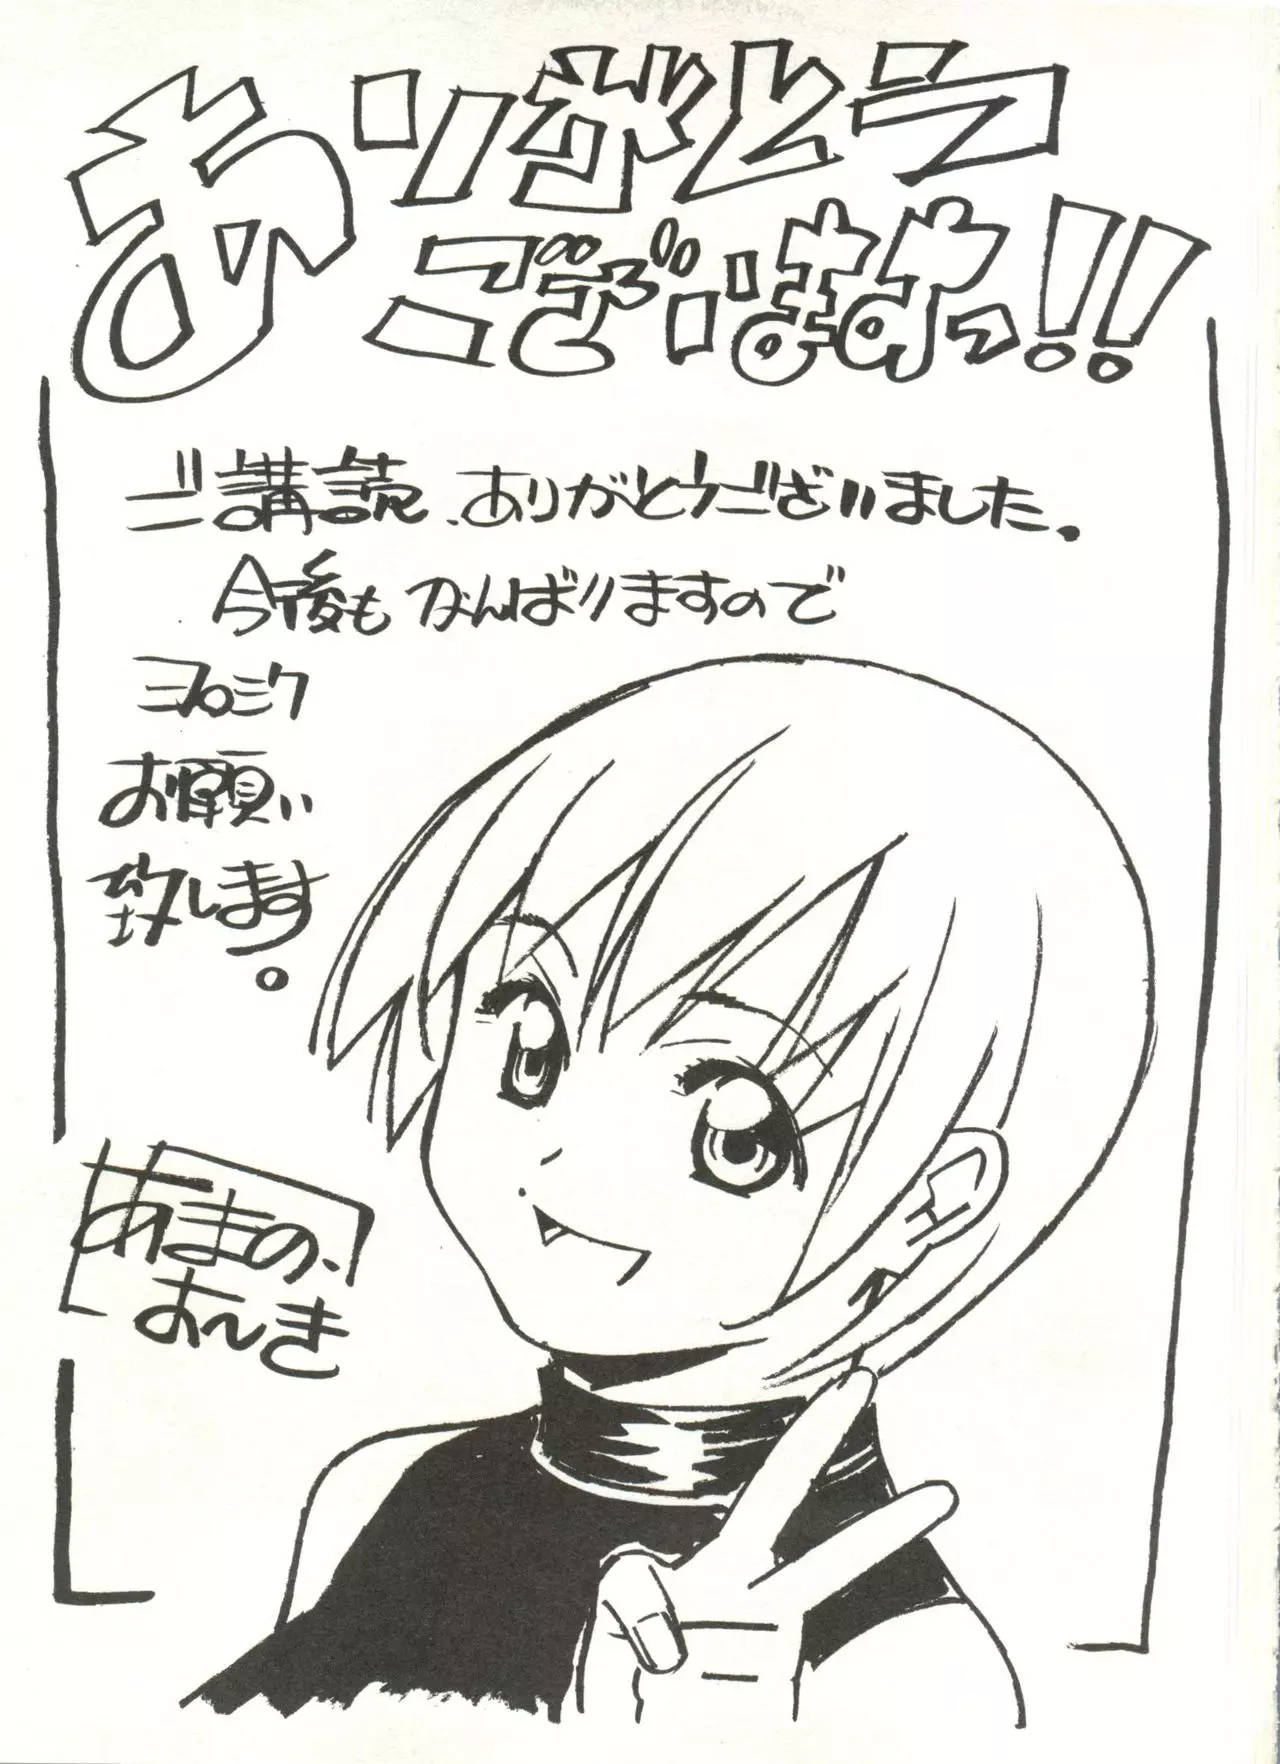 ありがとう
ございまぁっ!!
ご講読、ありがとうございました。
今後もがんばりますので
ヨロシク
お願い
致します。
あまの、